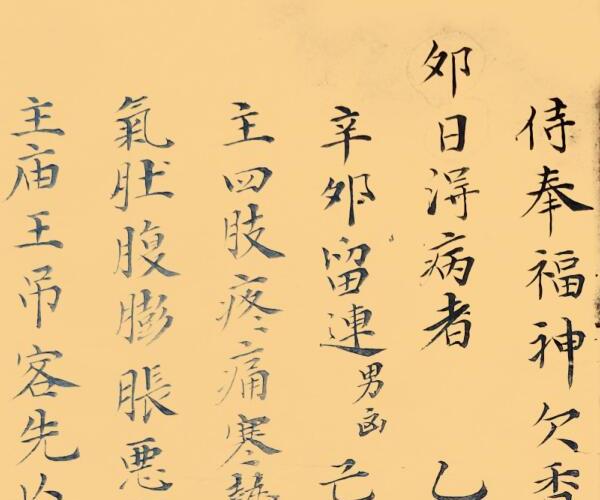 侍奉福神欠香
夘日淂病者 乙
辛夘留連男凶 亡
主四肢疼痛寒热
氣肚腹膨脹悪
主庙王吊客先